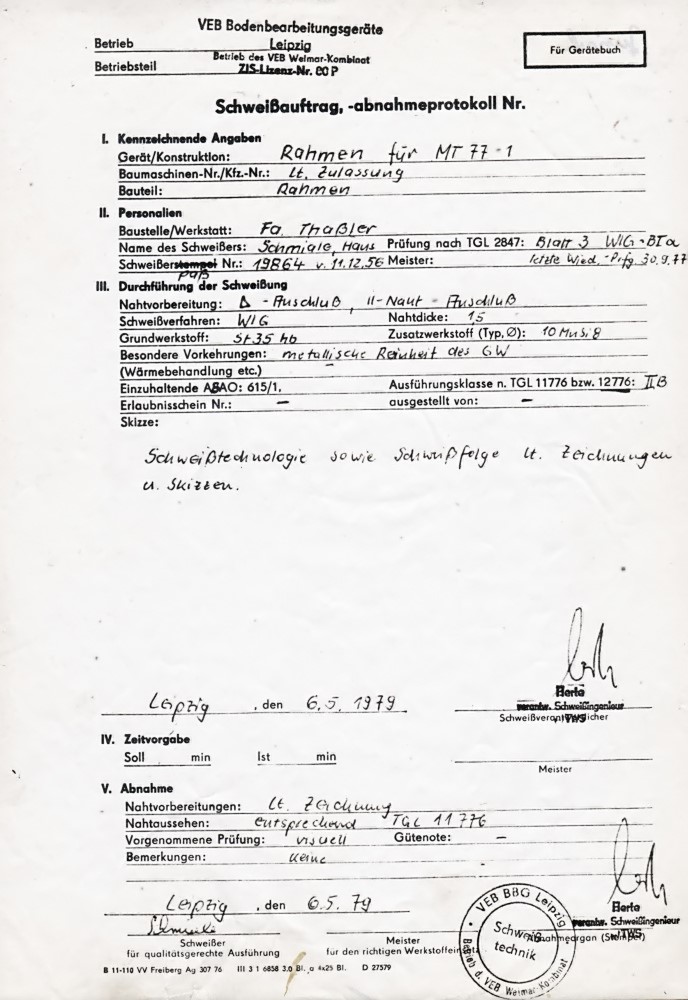 VEB Bodenbearbeitungsgeräte
Betrieb Leipzig
Betrieb des VEB Weimar-Kombinat
Betriebsteil ZIS-Lizenz-Nr. 80 P
Für Gerätebuch
Schweißauftrag, -abnahmeprotokoll Nr.
I. Kennzeichnende Angaben
Gerät/Konstruktion: Rahmen für MT 77-1
Baumaschinen-Nr./Kfz.-Nr.: lt. Zulassung
Bauteil: Rahmen
II. Personalien
Baustelle/Werkstatt: Fa. Thaßler
Name des Schweißers: Schmiale, Hans Prüfung nach TGL 2847: Blatt 3 WIG-BIa
Schweißerstempel Nr.: 19864 v. 11.12.56 Meister: letzte Wied.-Prfg 30.9.77
paß
III. Durchführung der Schweißung
Nahtvorbereitung: Δ - Anschluß, II-Naht - Anschluß
Schweißverfahren: WIG Nahtdicke: 15
Grundwerkstoff: St 35 hb Zusatzwerkstoff (Typ, Ø): 10 MnSi 8
Besondere Vorkehrungen: metallische Reinheit des GW
(Wärmebehandlung etc.) –
Einzuhaltende ABAO: 615/1, Ausführungsklasse n. TGL 11776 bzw. 12776: II B
Erlaubnisschein Nr.: – ausgestellt von: –
Skizze:
Schweißtechnologie sowie Schweißfolge lt. Zeichnungen
u. Skizzen.
Leipzig, den 6.5.1979
Herte
verantw. Schweißingenieur
Schweißverantwortlicher
TWS
IV. Zeitvorgabe
Soll min Ist min
Meister
V. Abnahme
Nahtvorbereitungen: lt. Zeichnung
Nahtaussehen: entsprechend TGL 11776
Vorgenommene Prüfung: visuell Gütenote: –
Bemerkungen: keine
Leipzig, den 6.5.79
Herte
verantw. Schweißingenieur
TWS
Abnahmeorgan (Stempel)
VEB BBG Leipzig
Schweiß-
technik
Betrieb d. VEB Weimar-Kombinat
Schweißer Meister
für qualitätsgerechte Ausführung für den richtigen Werkstoffeinsatz
B 11-110 VV Freiberg Ag 307 76 III 3 1 6858 3,0 Bl. a 4x25 Bl. D 27579